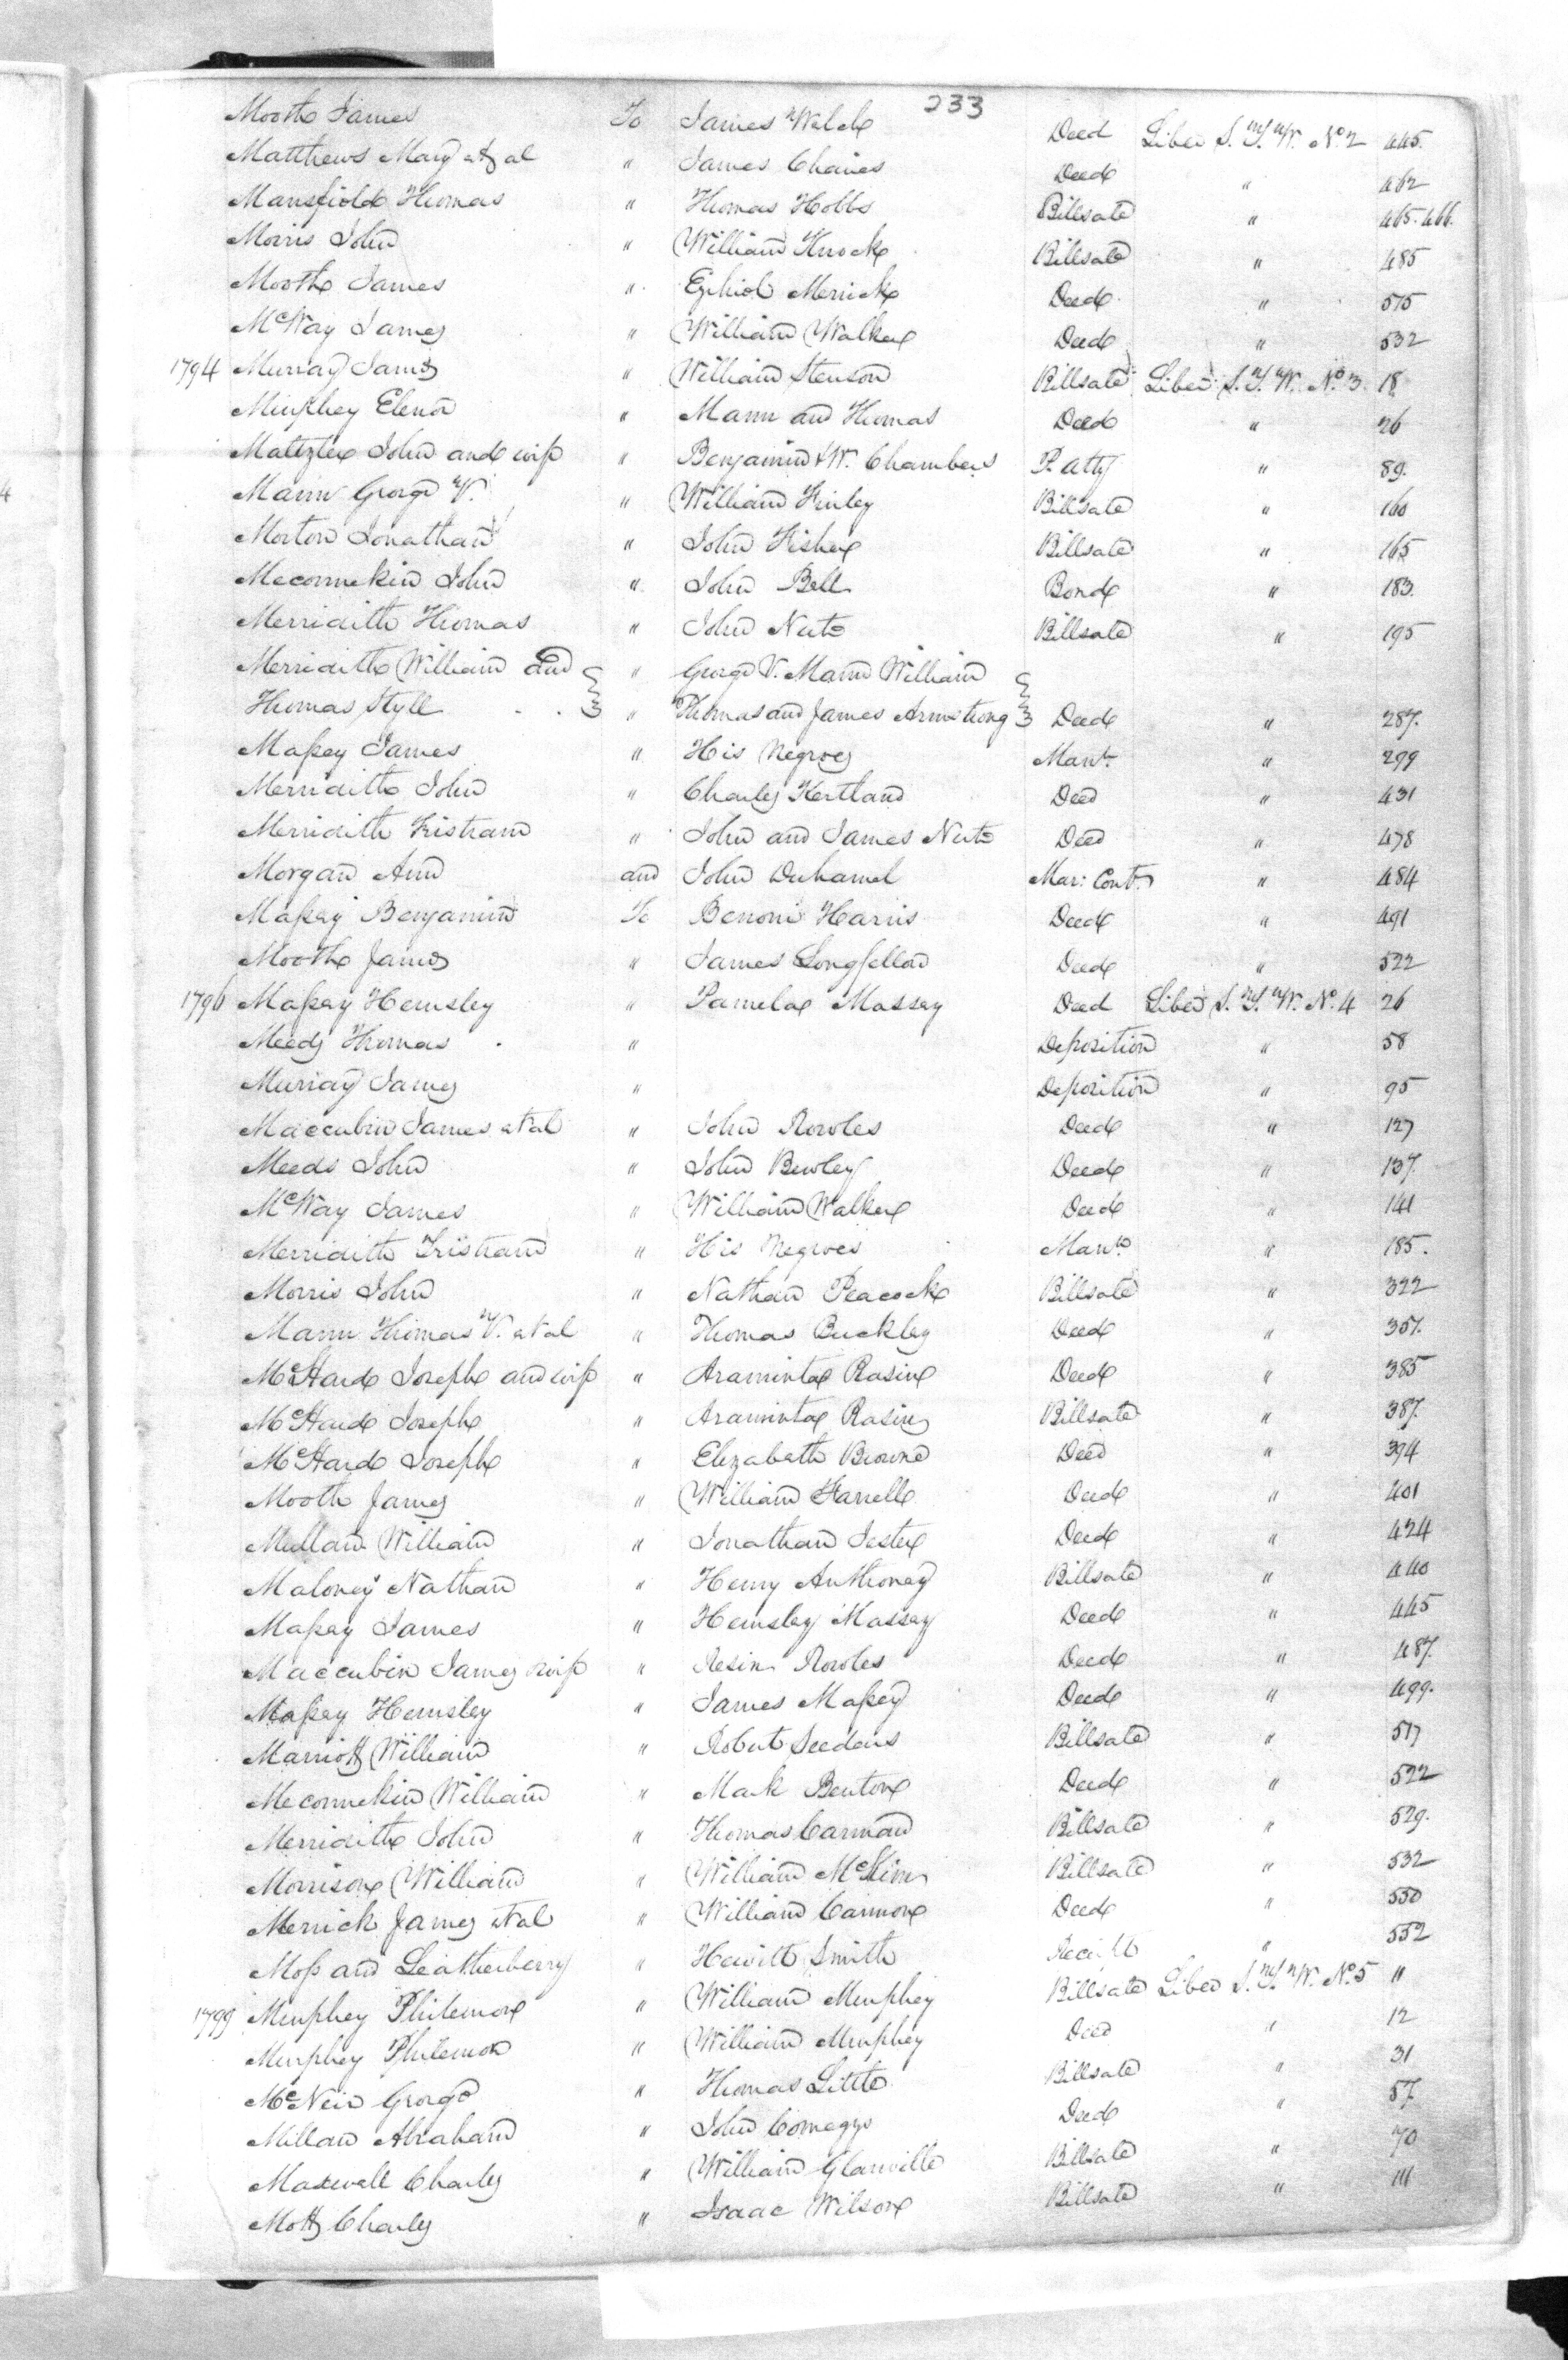 233
Mooth James To James Welch Deed Liber S.T.W. No. 2 445.
Matthews Mary et al " James Chaires Deed " 462
Mansfield Thomas " Thomas Hobbs Billsale " 465.466.
Morris John " William Knock Billsale " 485
Mooth James " Ezekiel Merrick Deed " 515
McWay James " William Walker Deed " 532
1794 Murray James " William Stenson Billsale Liber S.T.W. No. 3 18
Murphey Elenor " Mann and Thomas Deed " 26
John and wife " Benjamin & W. Chambers P. Atty " 89.
Mann George V. " William Finley Billsale " 160
Morton Jonathan " John Fisher Billsale " 165
Meconnekin John " John Bell Bond " 183.
Merridith Thomas " John Nuts Billsale " 195
Merridith William and " George V. Mann William
Thomas Styll " Thomas and James Armstrong Deed " 287.
Massey James " His Negroes Man. " 299
Merridith John " Charles Hertland Deed " 431
Merridith Tristram " John and James Nuts Deed " 478
Morgan Ann and John Duhamel Mar: Cont. " 484
Massey Benjamin To Benoni Harris Deed " 491
Mooth James " James Longfellow Deed " 522
1796 Massey Hemsley " Pamela Massey Deed Liber S.T.W. No. 4 26
Meeds Thomas " Deposition " 58
Murray James " Deposition " 95
Maccubin James et al " John Rowles Deed " 127
Meeds John " John Bewley Deed " 137.
McWay James " William Walker Deed " 141
Merridith Tristram " His Negroes Man. " 185.
Morris John " Nathan Peacock Billsale " 322
Mann Thomas V. et al " Thomas Buckley Deed " 357.
McHard Joseph and wife " Araminta Rasin Deed " 385
McHard Joseph " Araminta Rasin Billsale " 387.
McHard Joseph " Elizabeth Browne Deed " 394
Mooth James " William Farrell Deed " 401
Mullan William " Jonathan Jester Deed " 424
Maloney Nathan " Henry Anthoney Billsale " 440
Massey James " Hemsley Massey Deed " 445
Maccubin James & wife " Resin Rowles Deed " 487.
Massey Hemsley " James Massey Deed " 499.
Marriott William " Robert Seeders Billsale " 517
Meconnekin William " Mark Benton Deed " 522
Merridith John " Thomas Carman Billsale " 529.
Morrison William " William McKim Billsale " 532
Merrick James et al " William Cannon Deed " 550
Moss and Leatherberry " Hewitt Smith Receipt " 552
1799 Murphey Philemon " William Murphey Billsale Liber S.T.W. No. 5 11
Murphey Philemon " William Murphey Deed " 12
McNeir George " Thomas Little Billsale " 31
Millan Abraham " John Comegys Deed " 57.
Maxwell Charles " William Glanville Billsale " 70
Mott Charles " Isaac Wilson Billsale " 111